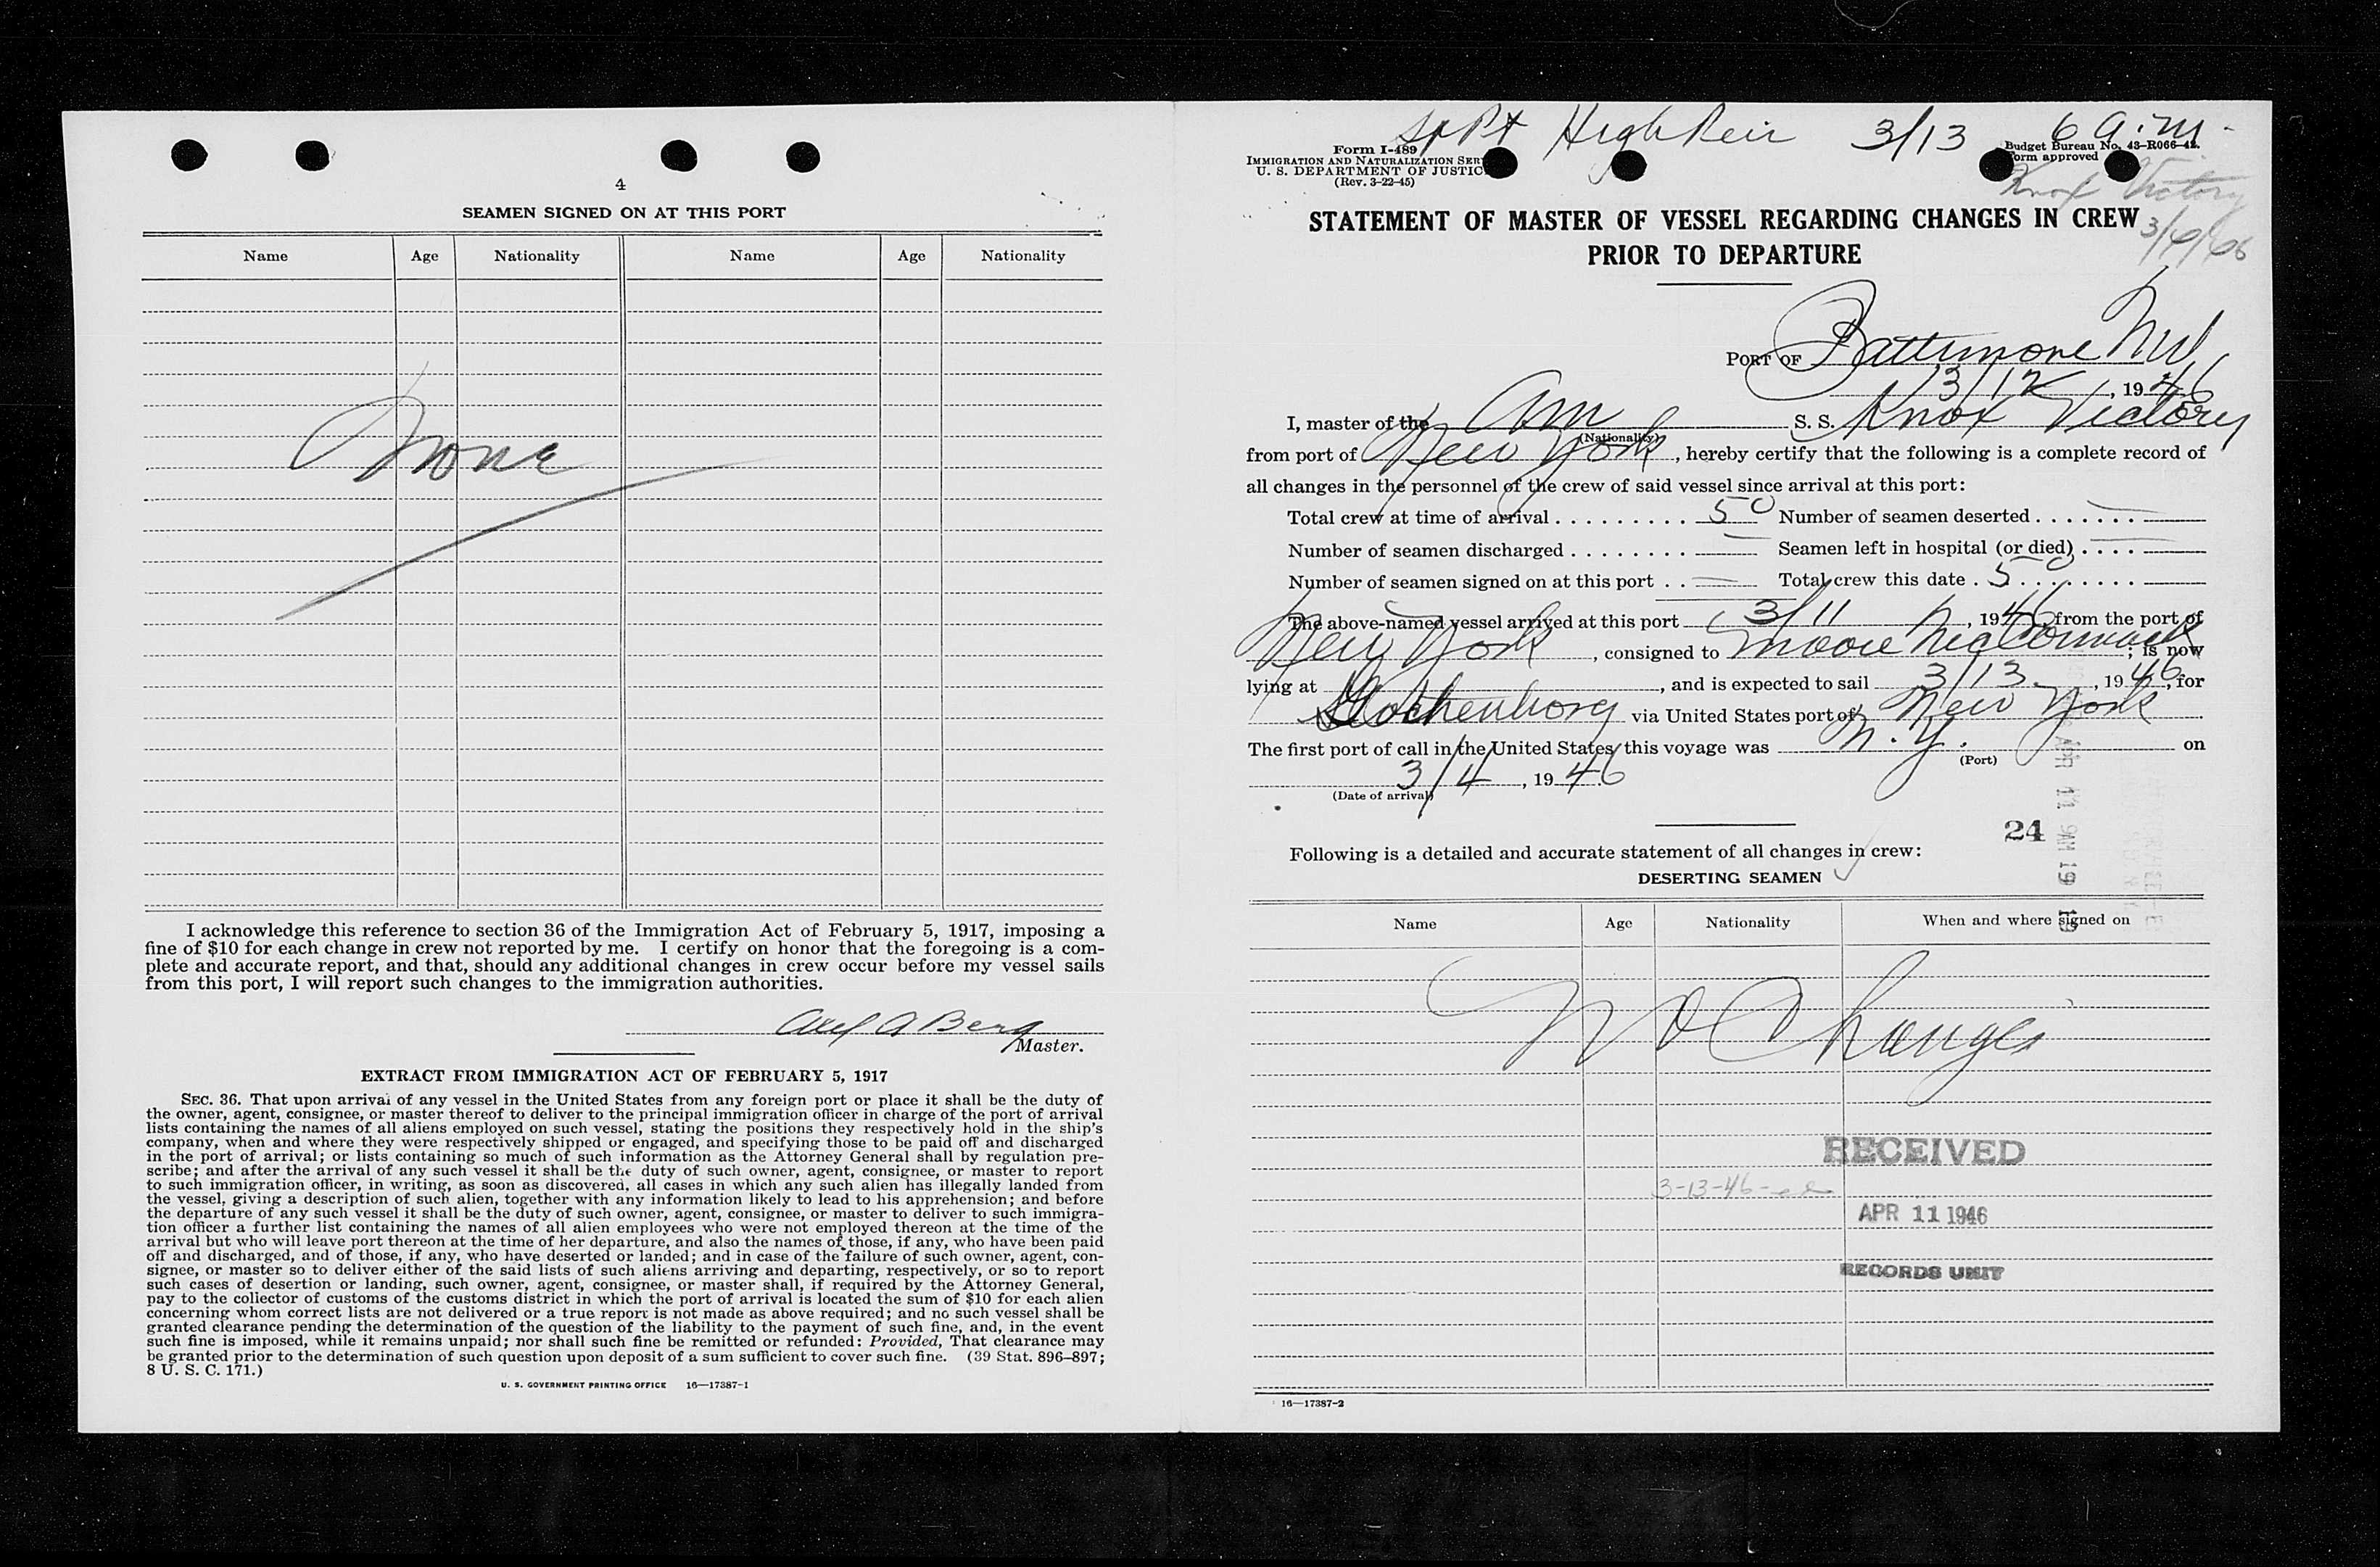 4
SEAMEN SIGNED ON AT THIS PORT
Name Age Nationality Name Age Nationality
None
I acknowledge this reference to section 36 of the Immigration Act of February 5, 1917, imposing a
fine of $10 for each change in crew not reported by me. I certify on honor that the foregoing is a com-
plete and accurate report, and that, should any additional changes in crew occur before my vessel sails
from this port, I will report such changes to the immigration authorities.
A Berg
Master.
EXTRACT FROM IMMIGRATION ACT OF FEBRUARY 5, 1917
SEC. 36. That upon arrival of any vessel in the United States from any foreign port or place it shall be the duty of
the owner, agent, consignee, or master thereof to deliver to the principal immigration officer in charge of the port of arrival
lists containing the names of all aliens employed on such vessel, stating the positions they respectively hold in the ship's
company, when and where they were respectively shipped or engaged, and specifying those to be paid off and discharged
in the port of arrival; or lists containing so much of such information as the Attorney General shall by regulation pre-
scribe; and after the arrival of any such vessel it shall be the duty of such owner, agent, consignee, or master to report
to such immigration officer, in writing, as soon as discovered, all cases in which any such alien has illegally landed from
the vessel, giving a description of such alien, together with any information likely to lead to his apprehension; and before
the departure of any such vessel it shall be the duty of such owner, agent, consignee, or master to deliver to such immigra-
tion officer a further list containing the names of all alien employees who were not employed thereon at the time of the
arrival but who will leave port thereon at the time of her departure, and also the names of those, if any, who have been paid
off and discharged, and of those, if any, who have deserted or landed; and in case of the failure of such owner, agent, con-
signee, or master so to deliver either of the said lists of such aliens arriving and departing, respectively, or so to report
such cases of desertion or landing, such owner, agent, consignee, or master shall, if required by the Attorney General,
pay to the collector of customs of the customs district in which the port of arrival is located the sum of $10 for each alien
concerning whom correct lists are not delivered or a true report is not made as above required; and no such vessel shall be
granted clearance pending the determination of the question of the liability to the payment of such fine, and, in the event
such fine is imposed, while it remains unpaid; nor shall such fine be remitted or refunded: Provided, That clearance may
be granted prior to the determination of such question upon deposit of a sum sufficient to cover such fine. (39 Stat. 896–897;
8 U. S. C. 171.)
U. S. GOVERNMENT PRINTING OFFICE 16—17387-1
3/13 6 a.m.
Form I-489
IMMIGRATION AND NATURALIZATION SER
U. S. DEPARTMENT OF JUSTIC
(Rev. 3-22-45)
Budget Bureau No. 43-R066-42.
Form approved
Knox Victory
STATEMENT OF MASTER OF VESSEL REGARDING CHANGES IN CREW
PRIOR TO DEPARTURE
PORT OF Baltimore Md
3/12, 1946
I, master of the Am S. S. Knox Victory
(Nationality)
from port of New York, hereby certify that the following is a complete record of
all changes in the personnel of the crew of said vessel since arrival at this port:
Total crew at time of arrival . . . . . . . . . 50 Number of seamen deserted . . . . . . . —
Number of seamen discharged . . . . . . . . — Seamen left in hospital (or died) . . . . —
Number of seamen signed on at this port . . — Total crew this date . 50 . . . . . . .
The above-named vessel arrived at this port 3/11, 1946 from the port of
New York, consigned to Moore McCormack; is now
lying at , and is expected to sail 3/13, 1946, for
Gothenborg via United States port of New York
The first port of call in the United States this voyage was N.Y. on
(Port)
3/4, 1946
(Date of arrival)
24
Following is a detailed and accurate statement of all changes in crew:
DESERTING SEAMEN
Name Age Nationality When and where signed on
No Changes
RECEIVED
3-13-46
APR 11 1946
RECORDS UNIT
16—17387-2